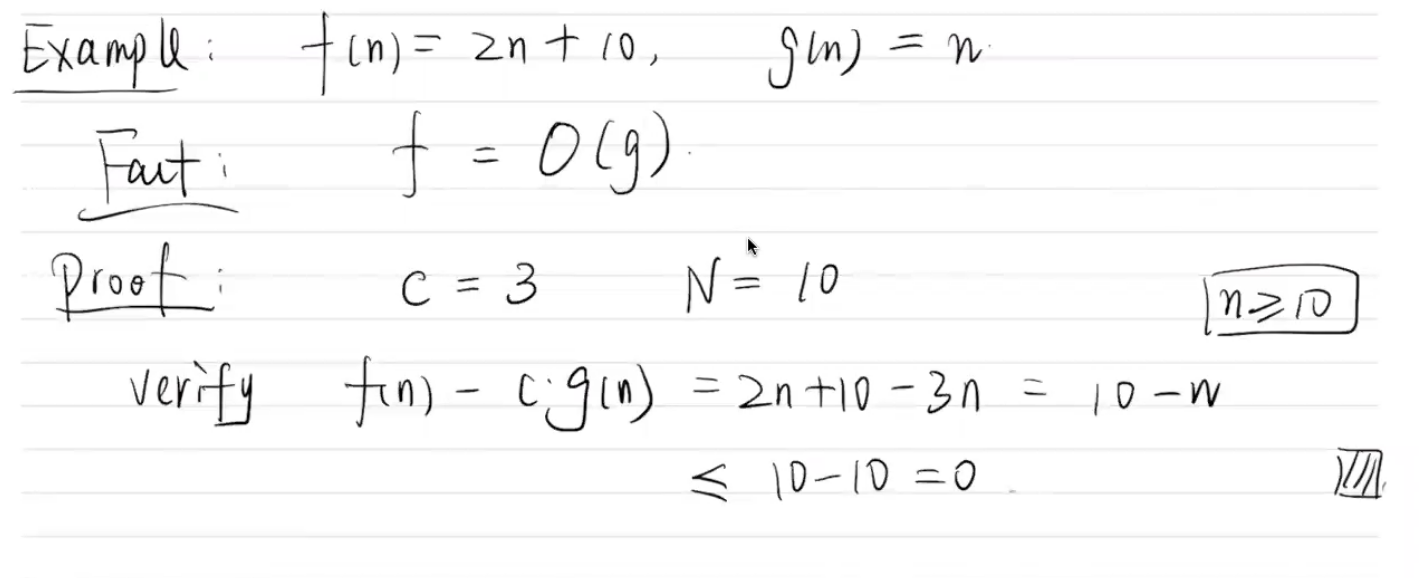 Example: f(n) = 2n + 10, g(n) = n.
Fact: f = O(g).
Proof: c = 3 N = 10 n ≥ 10
verify f(n) - c·g(n) = 2n + 10 - 3n = 10 - n
≤ 10 - 10 = 0.